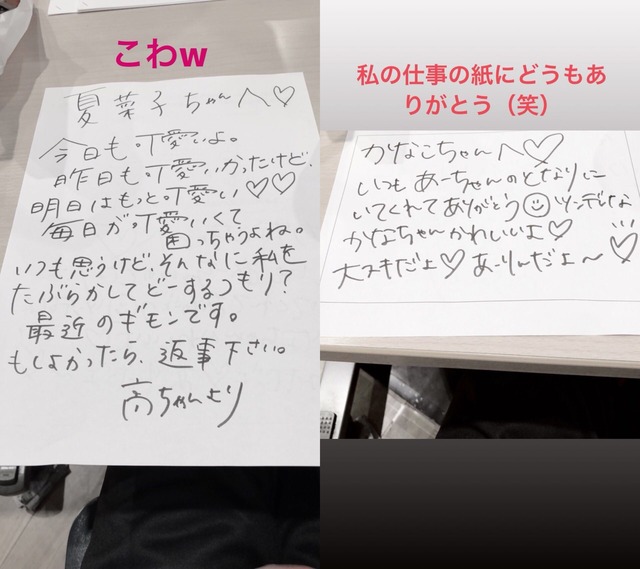 こわw
夏菜子ちゃんへ♡
今日も可愛いよ。
昨日も可愛いかったけど、
明日はもっと可愛い♡♡
毎日が可愛いくて
困っちゃうよね。
いつも思うけど、そんなに私を
たぶらかしてどーするつもり?
最近のギモンです。
もしよかったら、返事下さい。
高ちゃんより
私の仕事の紙にどうもあ
りがとう（笑）
かなこちゃんへ♡
いつもあーちゃんのとなりに
いてくれてありがとう☺ツンデレな
かなちゃんかわいいよ♡
大スキだよ♡あーりんだよ〜♡